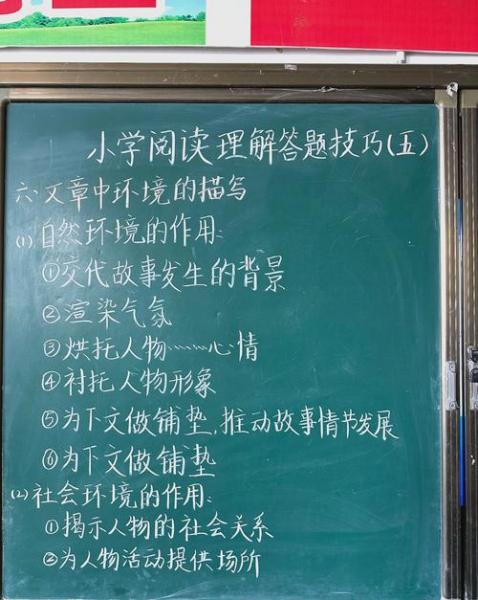 小学阅读理解答题技巧(五)
六、文章中环境的描写
(1)自然环境的作用:
①交代故事发生的背景
②渲染气氛
③烘托人物……心情
④衬托人物形象
⑤为下文做铺垫,推动故事情节发展
⑥为下文做铺垫
(2)社会环境的作用:
①揭示人物的社会关系
②为人物活动提供场所